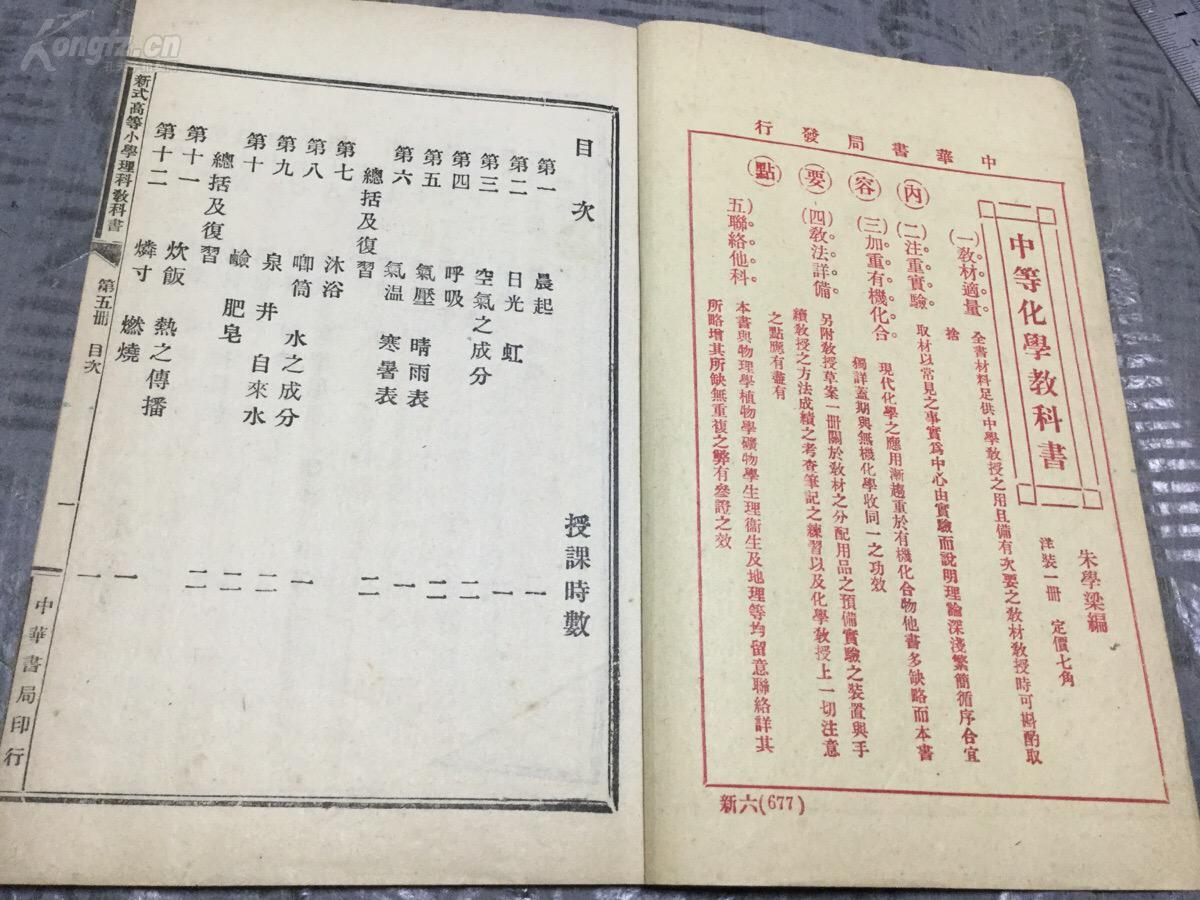 中華書局發行
中等化學教科書
朱學梁編
洋裝一冊 定價七角
內容要點
(一)教材適量
全書材料足供中學教授之用且備有次要之教材教授時可斟酌取
捨
(二)注重實驗
取材以常見之事實爲中心由實驗而說明理論深淺繁簡循序合宜
(三)加重有機化合
現代化學之應用漸趨重於有機化合物他書多缺略而本書
獨詳蓋期與無機化學收同一之功效
(四)教法詳備
另附教授草案一冊關於教材之分配用品之預備實驗之裝置與手
續教授之方法成績之考查筆記之練習以及化學教授上一切注意
之點應有盡有
五聯絡他科
本書與物理學植物學礦物學生理衞生及地理等均留意聯絡詳其
所略增其所缺無重復之弊有參證之效
新六(677)
目次 授課時數
第一 晨起 一
第二 日光 虹 一
第三 空氣之成分 一
第四 呼吸 二
第五 氣壓 晴雨表 二
第六 氣温 寒暑表 一
總括及復習 二
第七 沐浴
第八 喞筒 水之成分 一
第九 泉 井 自來水 二
第十 鹼 肥皂 二
總括及復習 二
第十一 炊飯 熱之傳播 一
第十二 燐寸 燃燒 一
新式高等小學理科教科書 第五冊 目次 一 中華書局印行
Kongfz.cn